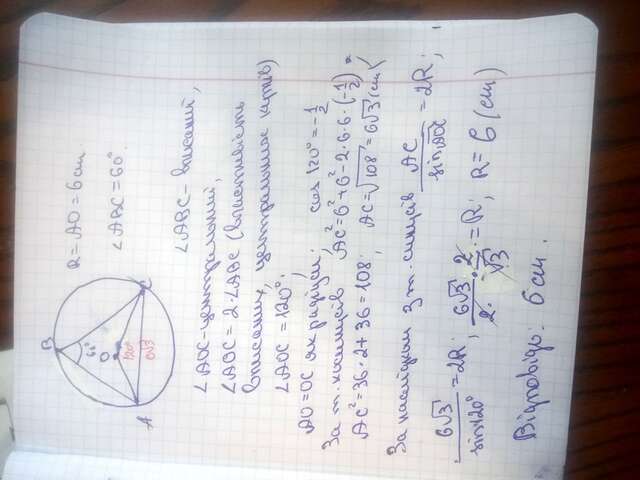 R = AO = 6 см
∠ABC = 60°.
B
60°
O
120°
6√3
A
C
∠ABC - вписаний,
∠AOC - центральний,
∠AOC = 2·∠ABC (властивість
вписаних, центральних кутів)
∠AOC = 120°.
AO = OC як радіуси; cos 120° = -1/2
За т. косинусів AC² = 6² + 6² - 2·6·6·(-1/2)
AC² = 36·2 + 36 = 108; AC = √108 = 6√3 (см)
За наслідком з т. синусів AC/sin AOC = 2R;
6√3/sin 120° = 2R; 6√3/2 · 2/√3 = R; R = 6 (см)
Відповідь: 6 см.